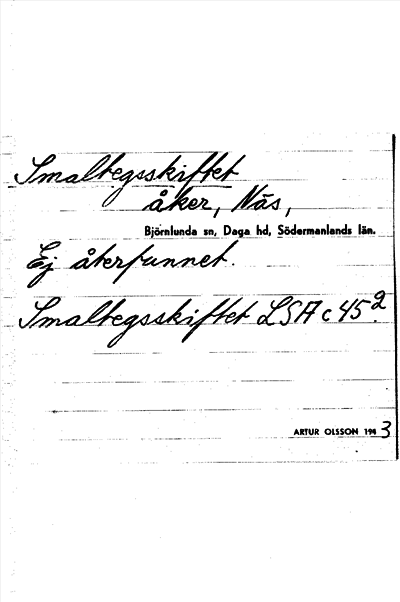 Smaltegsskiftet
åker, Näs,
Björnlunda sn, Daga hd, Södermanlands län.
Ej återfunnet.
Smaltegsskiftet LSA c 45 2.
ARTUR OLSSON 1943